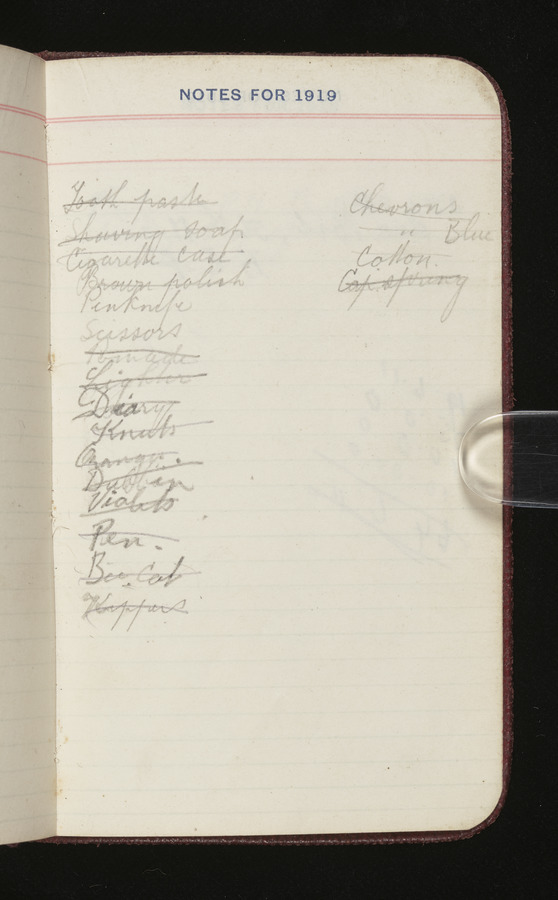 NOTES FOR 1919
Tooth paste
Shaving soap
Cigarette case
Brown polish
Penknife
Scissors
Pomade
Lighter
Diary
Knuts
Dubbin
Violets
Pen.
Kippers
Chevrons
" Blue
Cotton.
Cap. spring